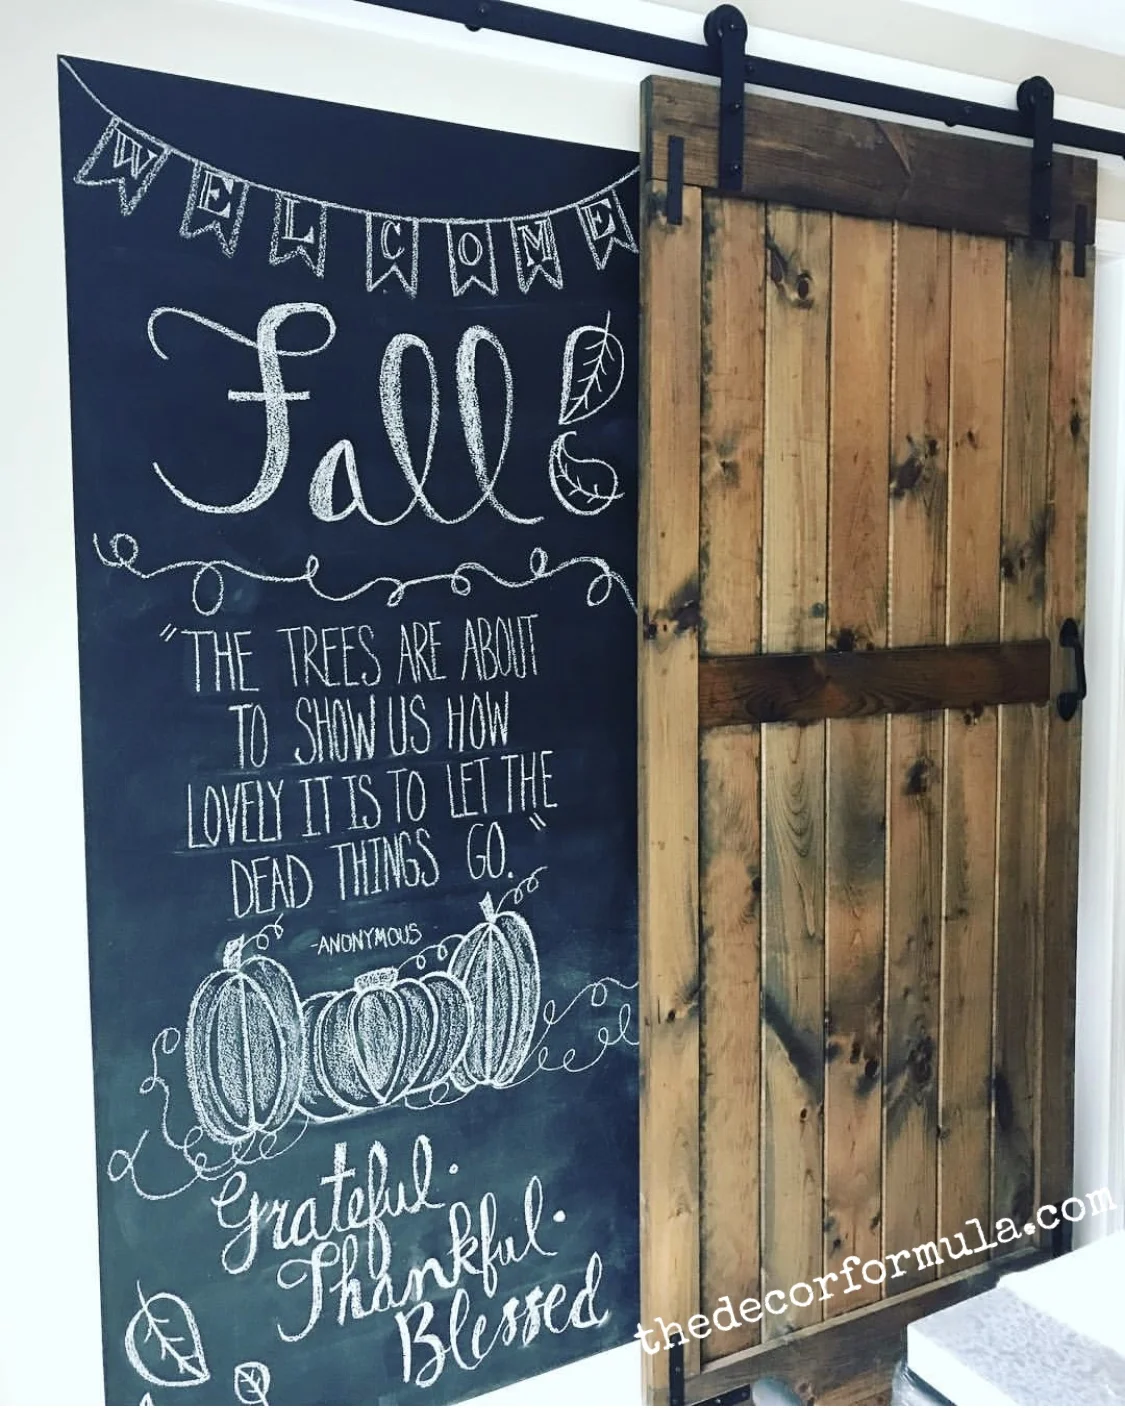 WELCOME
Fall
"THE TREES ARE ABOUT
TO SHOW US HOW
LOVELY IT IS TO LET THE
DEAD THINGS GO."
-ANONYMOUS
Grateful.
Thankful.
Blessed
thedecorformula.com